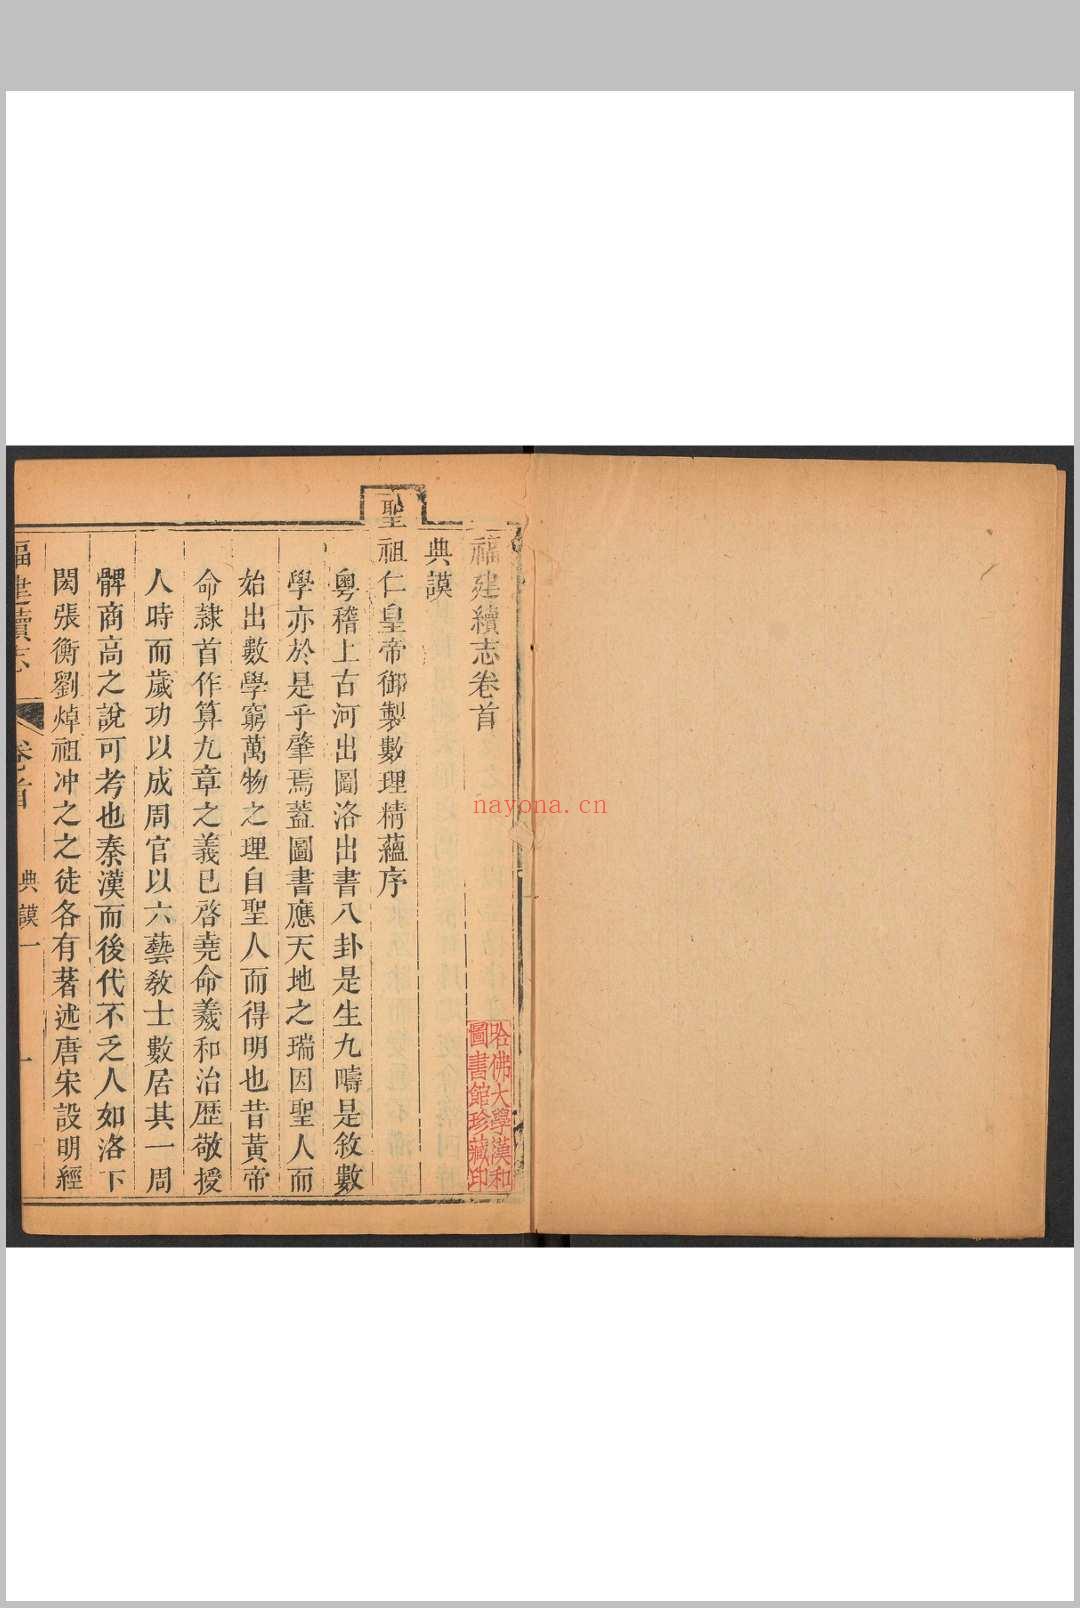 福建續志卷首
典謨
聖祖仁皇帝御製數理精蘊序
粵稽上古河出圖洛出書八卦是生九疇是敘數
學亦於是乎肇焉蓋圖書應天地之瑞因聖人而
始出數學窮萬物之理自聖人而得明也昔黃帝
命隸首作算九章之義已啓堯命羲和治歷敬授
人時而歲功以成周官以六藝教士數居其一周
髀商高之說可考也秦漢而後代不乏人如洛下
閎張衡劉焯祖冲之之徒各有著述唐宋設明經
福建續志 卷之首 典謨一 一
哈佛大學漢和
圖書館珍藏印
nayona.cn